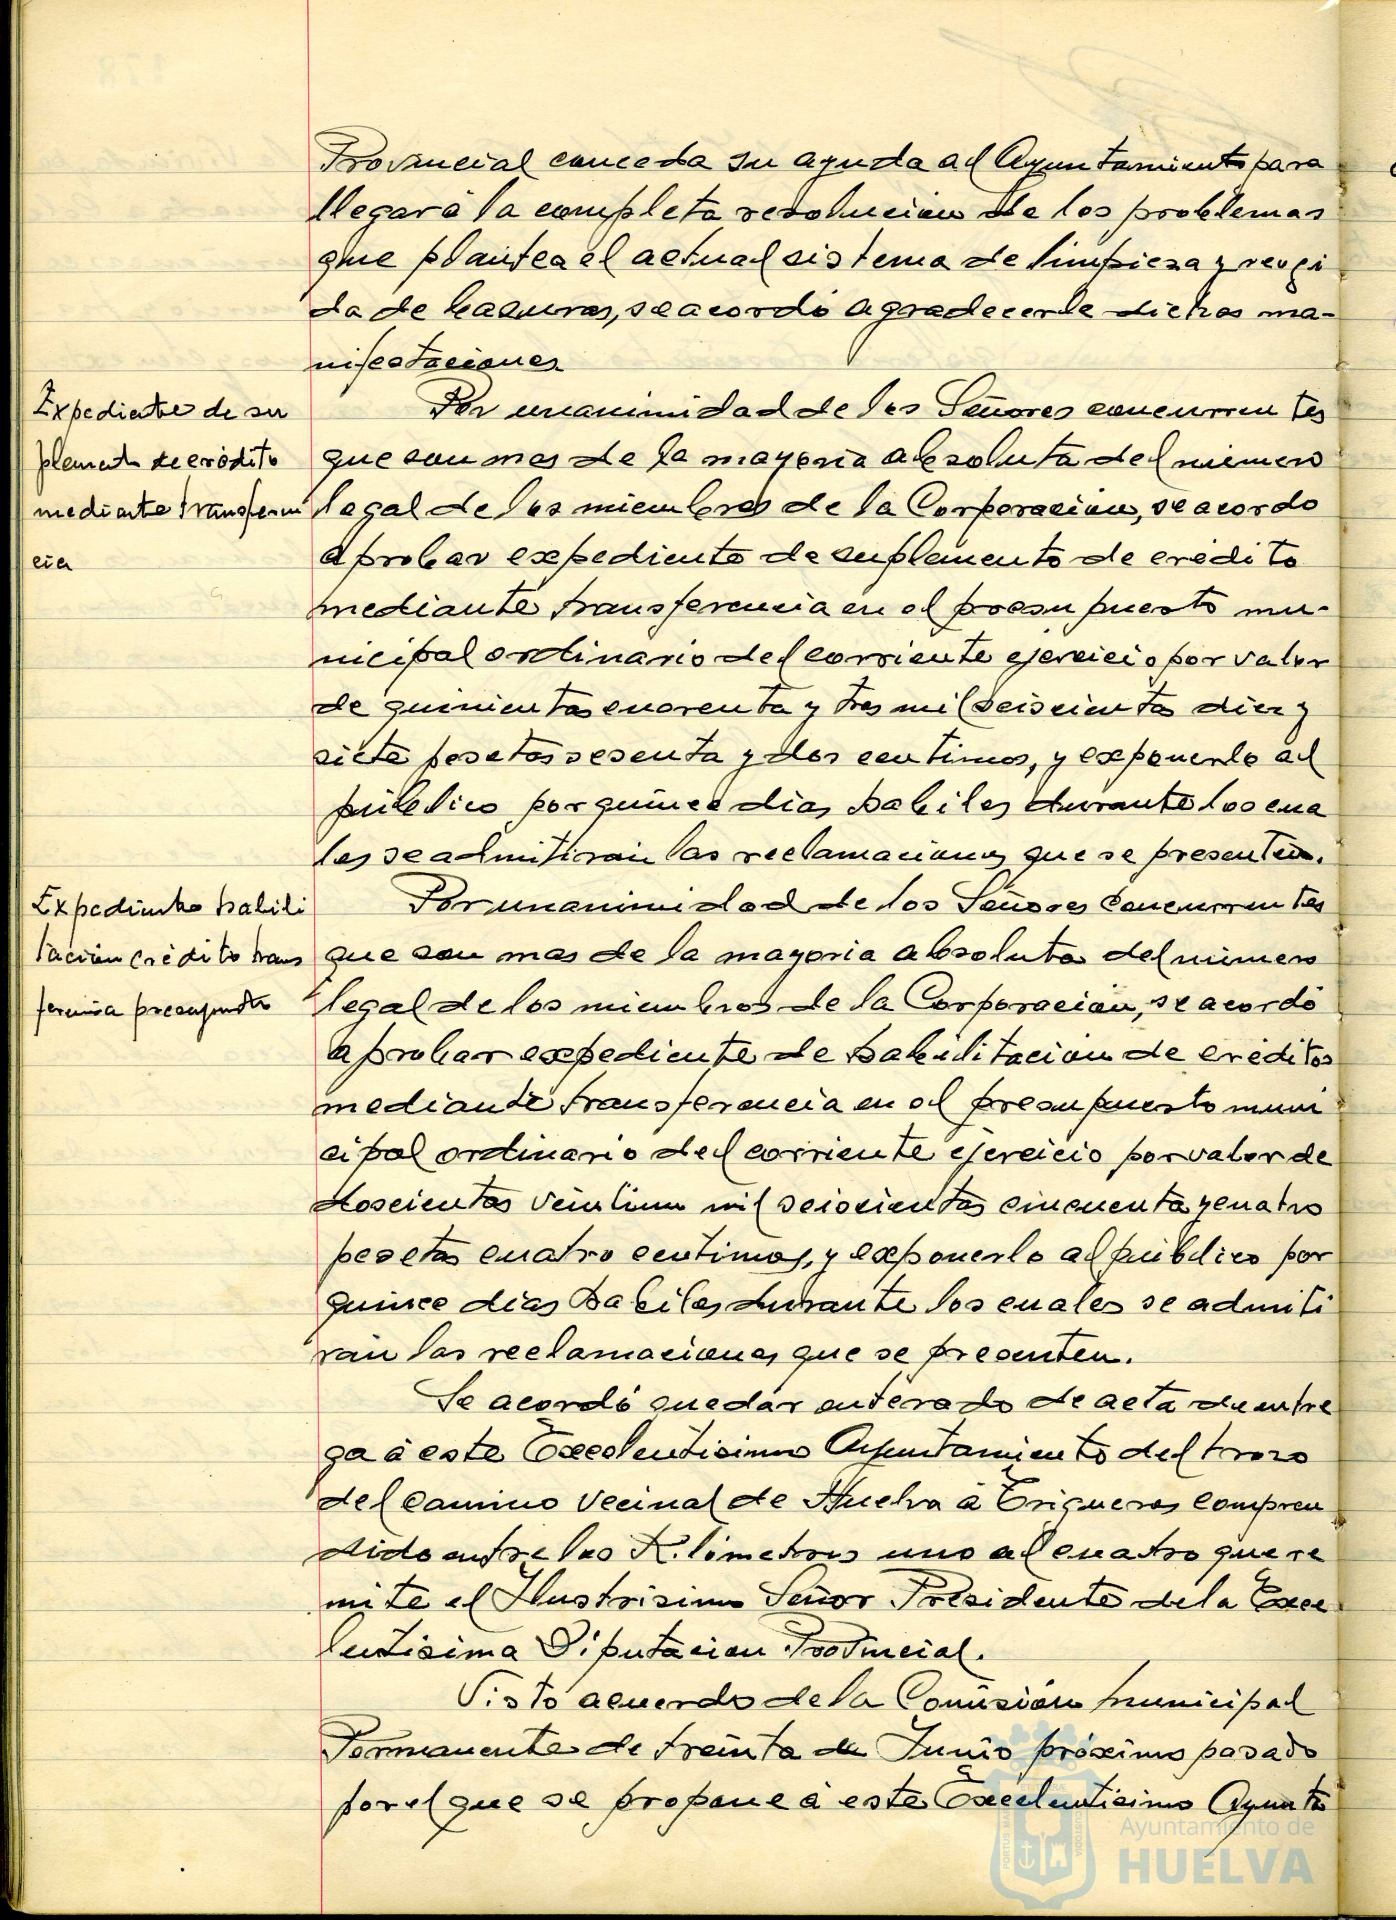 Provincial conceda su ayuda al Ayuntamiento para
llegar á la completa resolucion de los problemas
que plantea el actual sistema de limpieza y recogi
da de basuras, se acordó agradecerle dichas ma-
nifestaciones
Expediente de su
plemento de crédito
mediante transferen
cia
Por unanimidad de los Señores concurrentes
que son mas de la mayoria absoluta del número
legal de los miembros de la Corporación, se acordo
aprobar expediente de suplemento de crédito
mediante transferencia en el presupuesto mu-
nicipal ordinario del corriente ejercicio por valor
de quinientas cuarenta y tres mil seiscientas diez y
siete pesetas sesenta y dos centimos, y exponerlo al
público por quince dias habiles durante los cua
les se admitirán las reclamaciones que se presenten.
Expediente habili
tación crédito trans
ferencia presupuesto
Por unanimidad de los Señores Concurrentes
que son mas de la mayoria absoluta del número
legal de los miembros de la Corporación, se acordó
aprobar expediente de habilitación de créditos
mediante transferencia en el presupuesto muni
cipal ordinario del corriente ejercicio por valor de
doscientas veintiun mil seiscientas cincuenta y cuatro
pesetas cuatro centimos, y exponerlo al público por
quince dias habiles durante los cuales se admiti
rán las reclamaciones que se presenten.
Se acordó quedar enterado de acta de entre
ga á este Excelentisimo Ayuntamiento del trozo
del camino vecinal de Huelva á Trigueros compren
dido entre los Kilómetros uno al cuatro que re
mite el Ilustrisimo Señor Presidente de la Exce
lentisima Diputacion Provincial.
Visto acuerdo de la Comisión municipal
Permanente de treinta de Junio próximo pasado
por el que se propone á este Excelentisimo Ayunta
Ayuntamiento de
HUELVA